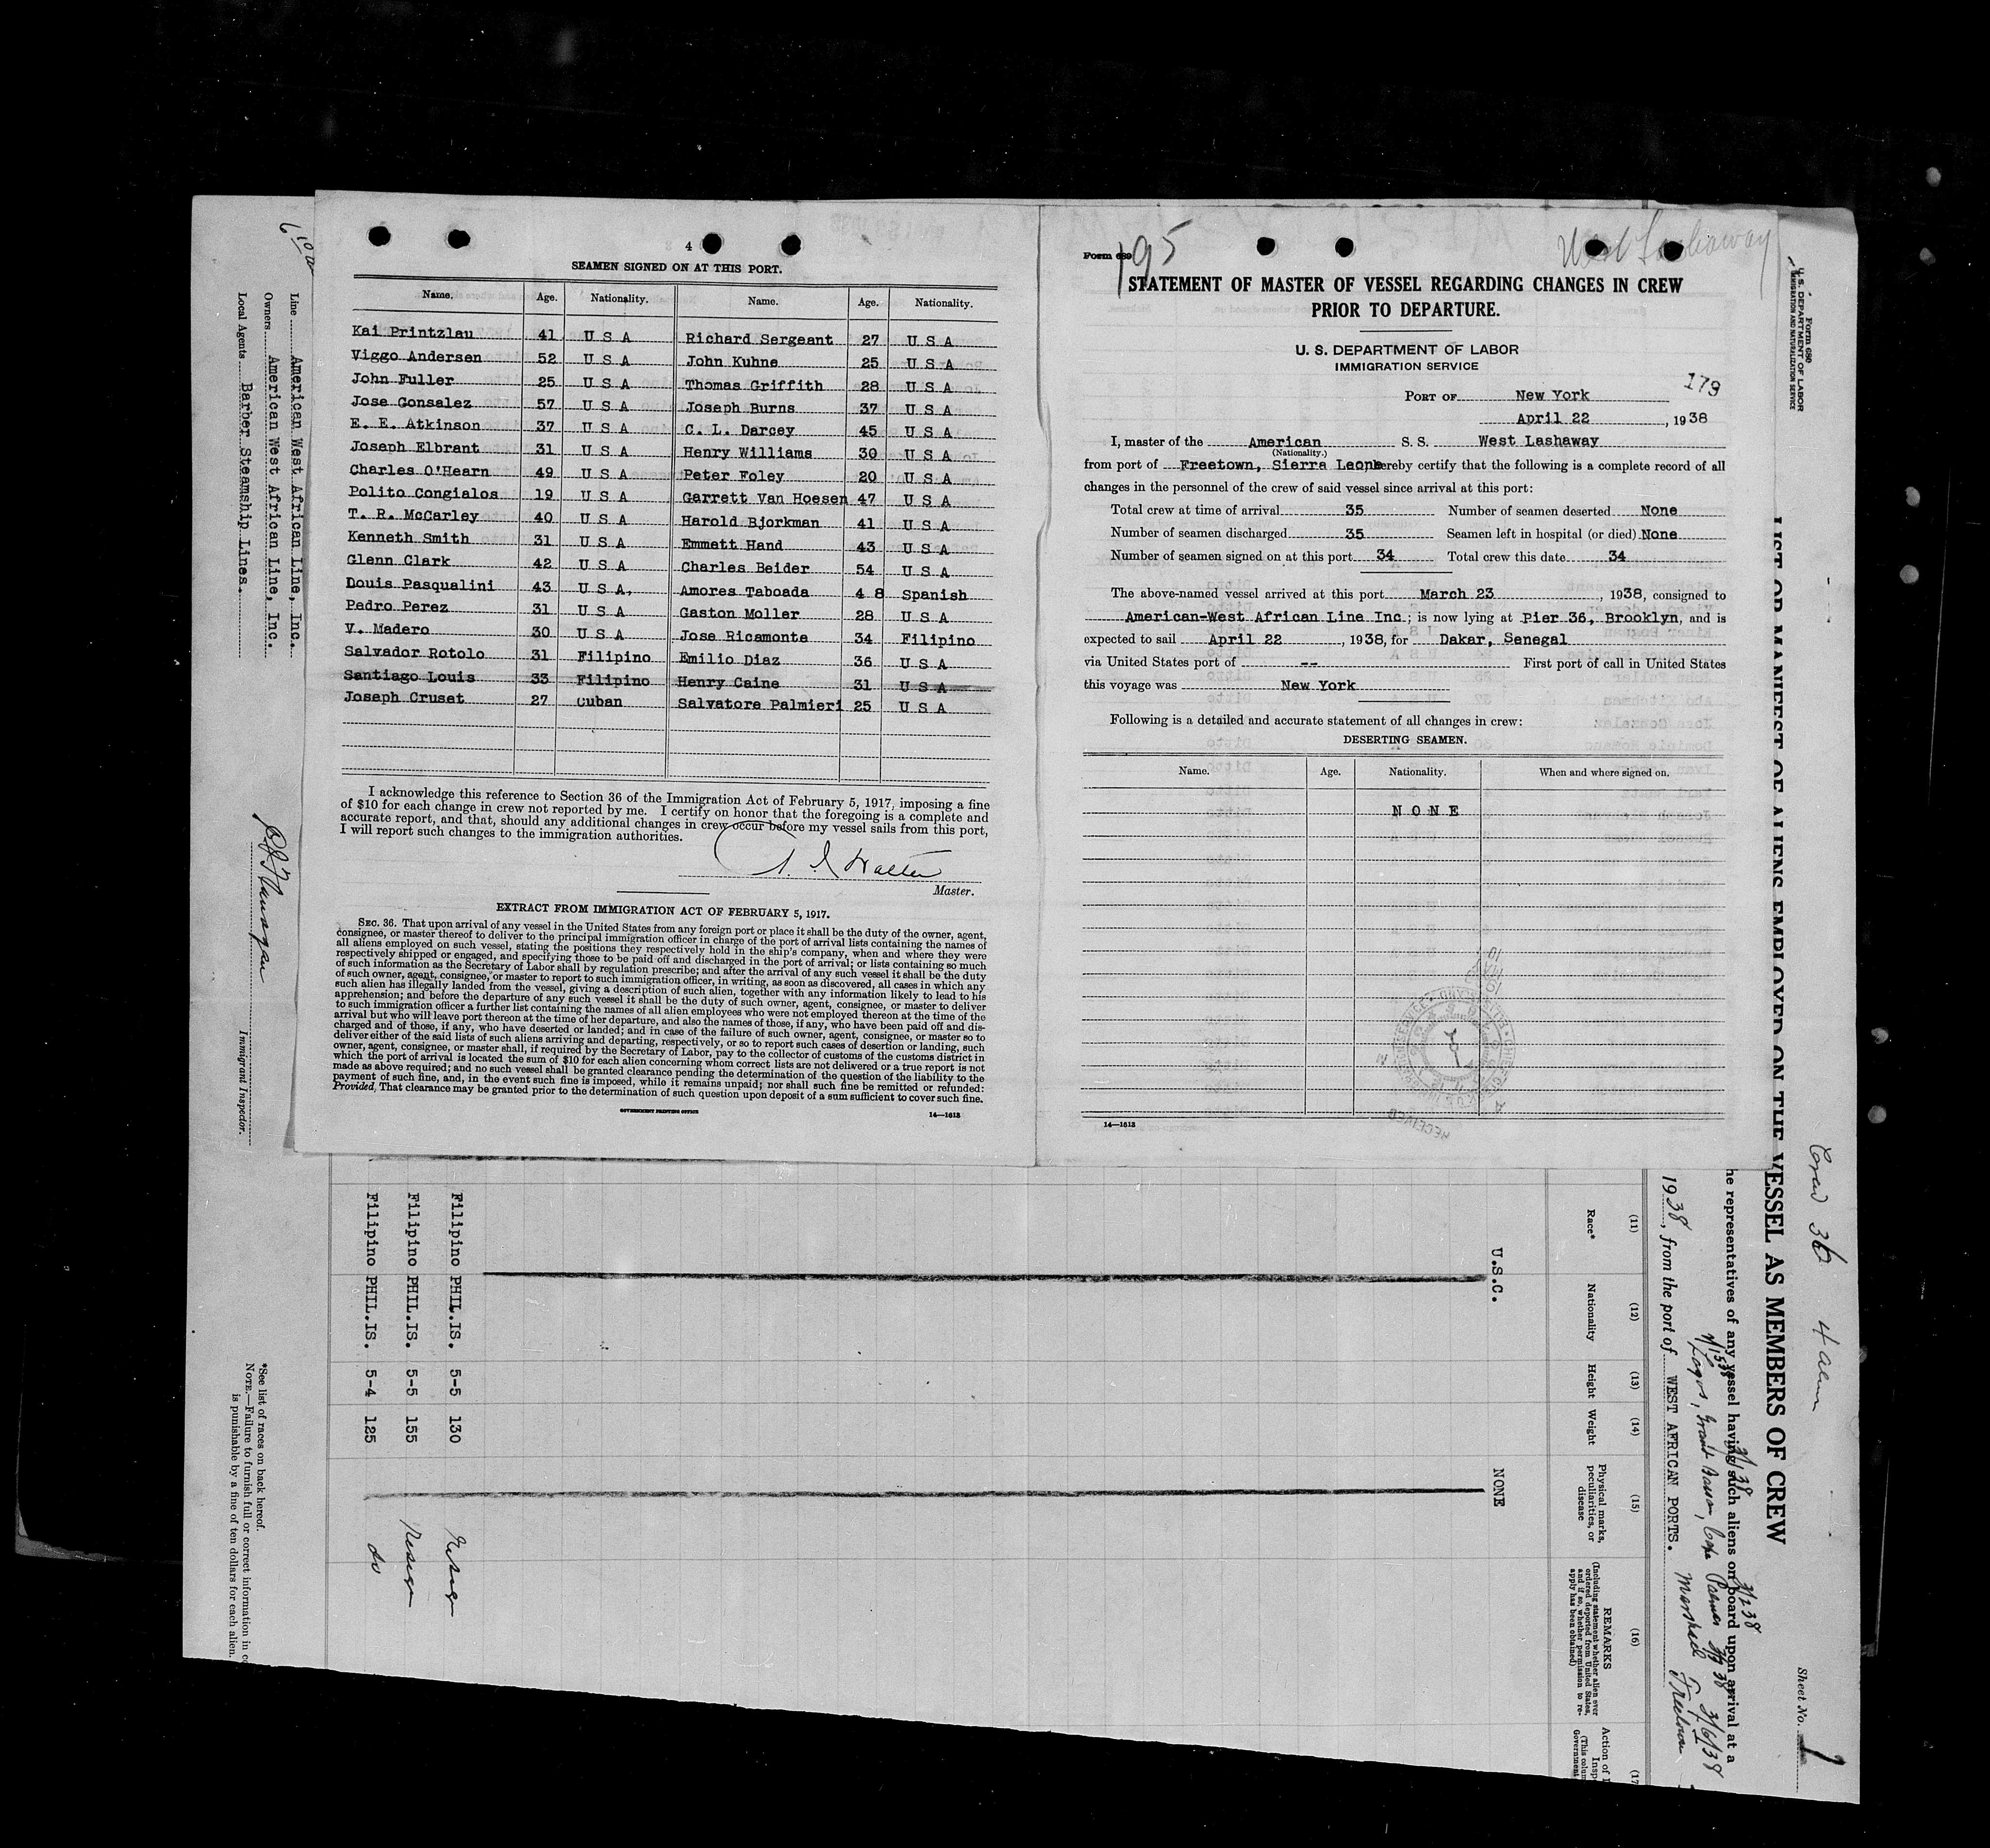 4
SEAMEN SIGNED ON AT THIS PORT.
Name. Age. Nationality. Name. Age. Nationality.
Kai Printzlau 41 U S A Richard Sergeant 27 U S A
Viggo Andersen 52 U S A John Kuhne 25 U S A
John Fuller 25 U S A Thomas Griffith 28 U S A
Jose Gonsalez 57 U S A Joseph Burns 37 U S A
E. E. Atkinson 37 U S A C. L. Darcey 45 U S A
Joseph Elbrant 31 U S A Henry Williams 30 U S A
Charles O'Hearn 49 U S A Peter Foley 20 U S A
Polito Congialos 19 U S A Garrett Van Hoesen 47 U S A
T. R. McCarley 40 U S A Harold Bjorkman 41 U S A
Kenneth Smith 31 U S A Emmett Hand 43 U S A
Glenn Clark 42 U S A Charles Beider 54 U S A
Douis Pasqualini 43 U S A, Amores Taboada 4 8 Spanish
Pedro Perez 31 U S A Gaston Moller 28 U S A
V. Madero 30 U S A Jose Ricamonte 34 Filipino
Salvador Rotolo 31 Filipino Emilio Diaz 36 U S A
Santiago Louis 33 Filipino Henry Caine 31 U S A
Joseph Cruset 27 Cuban Salvatore Palmieri 25 U S A
I acknowledge this reference to Section 36 of the Immigration Act of February 5, 1917, imposing a fine
of $10 for each change in crew not reported by me. I certify on honor that the foregoing is a complete and
accurate report, and that, should any additional changes in crew occur before my vessel sails from this port,
I will report such changes to the immigration authorities.
Master.
EXTRACT FROM IMMIGRATION ACT OF FEBRUARY 5, 1917.
SEC. 36. That upon arrival of any vessel in the United States from any foreign port or place it shall be the duty of the owner, agent,
consignee, or master thereof to deliver to the principal immigration officer in charge of the port of arrival lists containing the names of
all aliens employed on such vessel, stating the positions they respectively hold in the ship's company, when and where they were
respectively shipped or engaged, and specifying those to be paid off and discharged in the port of arrival; or lists containing so much
of such information as the Secretary of Labor shall by regulation prescribe; and after the arrival of any such vessel it shall be the duty
of such owner, agent, consignee, or master to report to such immigration officer, in writing, as soon as discovered, all cases in which any
such alien has illegally landed from the vessel, giving a description of such alien, together with any information likely to lead to his
apprehension; and before the departure of any such vessel it shall be the duty of such owner, agent, consignee, or master to deliver
to such immigration officer a further list containing the names of all alien employees who were not employed thereon at the time of the
arrival but who will leave port thereon at the time of her departure, and also the names of those, if any, who have been paid off and dis-
charged and of those, if any, who have deserted or landed; and in case of the failure of such owner, agent, consignee, or master so to
deliver either of the said lists of such aliens arriving and departing, respectively, or so to report such cases of desertion or landing, such
owner, agent, consignee, or master shall, if required by the Secretary of Labor, pay to the collector of customs of the customs district in
which the port of arrival is located the sum of $10 for each alien concerning whom correct lists are not delivered or a true report is not
made as above required; and no such vessel shall be granted clearance pending the determination of the question of the liability to the
payment of such fine, and, in the event such fine is imposed, while it remains unpaid; nor shall such fine be remitted or refunded:
Provided, That clearance may be granted prior to the determination of such question upon deposit of a sum sufficient to cover such fine.
GOVERNMENT PRINTING OFFICE 14—1613
Form 689
195
West Lashaway
STATEMENT OF MASTER OF VESSEL REGARDING CHANGES IN CREW
PRIOR TO DEPARTURE.
U. S. DEPARTMENT OF LABOR
IMMIGRATION SERVICE
179
PORT OF New York
April 22, 1938
I, master of the American S. S. West Lashaway
(Nationality.)
from port of Freetown, Sierra Leone hereby certify that the following is a complete record of all
changes in the personnel of the crew of said vessel since arrival at this port:
Total crew at time of arrival 35 Number of seamen deserted None
Number of seamen discharged 35 Seamen left in hospital (or died) None
Number of seamen signed on at this port 34 Total crew this date 34
The above-named vessel arrived at this port March 23, 1938, consigned to
American-West African Line Inc.; is now lying at Pier 36, Brooklyn, and is
expected to sail April 22, 1938, for Dakar, Senegal
via United States port of -- First port of call in United States
this voyage was New York
Following is a detailed and accurate statement of all changes in crew:
DESERTING SEAMEN.
Name. Age. Nationality. When and where signed on.
N O N E
RECEIVED
14—1613
Line American West African Line, Inc.
Owners American West African Line, Inc.
Local Agents Barber Steamship Lines.
Immigrant Inspector.
*See list of races on back hereof.
NOTE.—Failure to furnish full or correct information in
is punishable by a fine of ten dollars for each alien.
Form 680
U. S. DEPARTMENT OF LABOR
IMMIGRATION AND NATURALIZATION SERVICE
Sheet No. 1
LIST OR MANIFEST OF ALIENS EMPLOYED ON THE VESSEL AS MEMBERS OF CREW
he representatives of any vessel having such aliens on board upon arrival at a
1938, from the port of WEST AFRICAN PORTS.
(11) (12) (13) (14) (15) (16) (17
Race* Nationality Height Weight Physical marks, peculiarities, or disease REMARKS
(Including statement whether alien ever
ordered deported from United States,
and if so, whether permission to re-
apply has been obtained)
U.S.C. NONE
Filipino PHIL.IS. 5-5 130
Filipino PHIL.IS. 5-5 155
Filipino PHIL.IS. 5-4 125 do